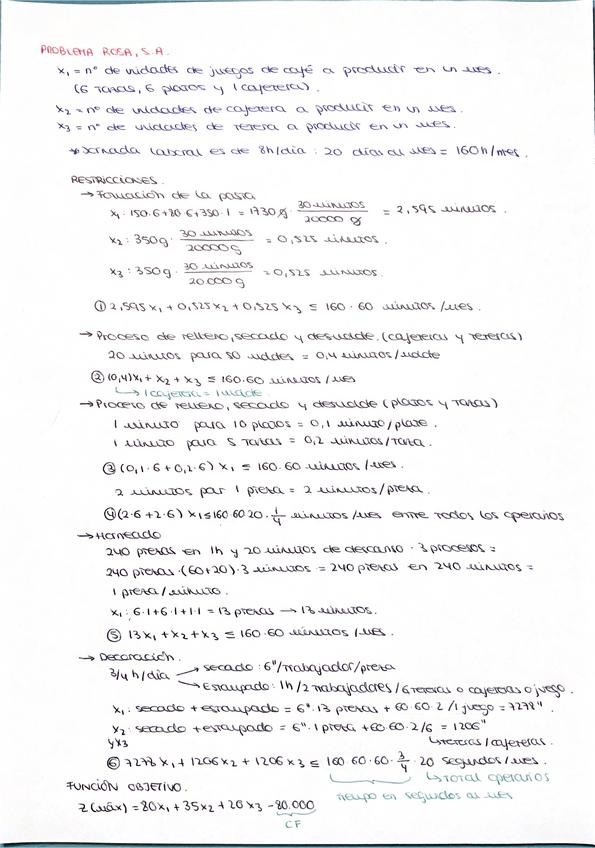 PROBLEMA ROSA, S.A.
x₁ = nº de unidades de juegos de café a producir en un mes.
(6 tazas, 6 platos y 1 cafetera).
x₂ = nº de unidades de cafetera a producir en un mes.
x₃ = nº de unidades de tetera a producir en un mes.
* Jornada laboral es de 8h/día : 20 días al mes = 160h/mes.
RESTRICCIONES.
→ Formación de la pasta
x₁: 150·6+80·6+350·1 = 1730g · 30 minutos / 20000 g = 2,595 minutos.
x₂: 350g · 30 minutos / 20000g = 0,525 minutos.
x₃: 350g · 30 minutos / 20000g = 0,525 minutos.
① 2,595x₁ + 0,525x₂ + 0,525x₃ ≤ 160·60 minutos/mes.
→ Proceso de relleno, secado y desmolde. (cafeteras y teteras)
20 minutos para 50 moldes = 0,4 minutos/molde
② (0,4)x₁ + x₂ + x₃ ≤ 160·60 minutos/mes
↳ 1 cafetera = 1 molde.
→ Proceso de relleno, secado y desmolde (platos y tazas)
1 minuto para 10 platos = 0,1 minuto/plato.
1 minuto para 5 tazas = 0,2 minutos/taza.
③ (0,1·6 + 0,2·6) x₁ ≤ 160·60 minutos/mes.
2 minutos por 1 pieza = 2 minutos/pieza.
④ (2·6 + 2·6) x₁ ≤ 160·60·20·1/4 minutos/mes entre todos los operarios
→ Horneado
240 piezas en 1h y 20 minutos de descanso · 3 procesos =
240 piezas · (60+20)·3 minutos = 240 piezas en 240 minutos =
1 pieza/minuto.
x₁: 6·1+6·1+1·1 = 13 piezas → 13 minutos.
⑤ 13x₁ + x₂ + x₃ ≤ 160·60 minutos/mes.
→ Decoración.
3/4 h/día → secado: 6"/trabajador/pieza
→ Estampado: 1h/2 trabajadores/6 teteras o cafeteras o juego.
x₁: secado + estampado = 6"·13 piezas + 60·60·2/1 juego = 7278".
x₂: secado + estampado = 6"·1 pieza + 60·60·2/6 = 1206"
y x₃ ↳ teteras/cafeteras.
⑥ 7278 x₁ + 1206x₂ + 1206x₃ ≤ 160·60·60·3/4·20 segundos/mes.
↳ total operarios
tiempo en segundos al mes
FUNCIÓN OBJETIVO.
Z (máx) = 80x₁ + 35x₂ + 26x₃ - 80.000
CF